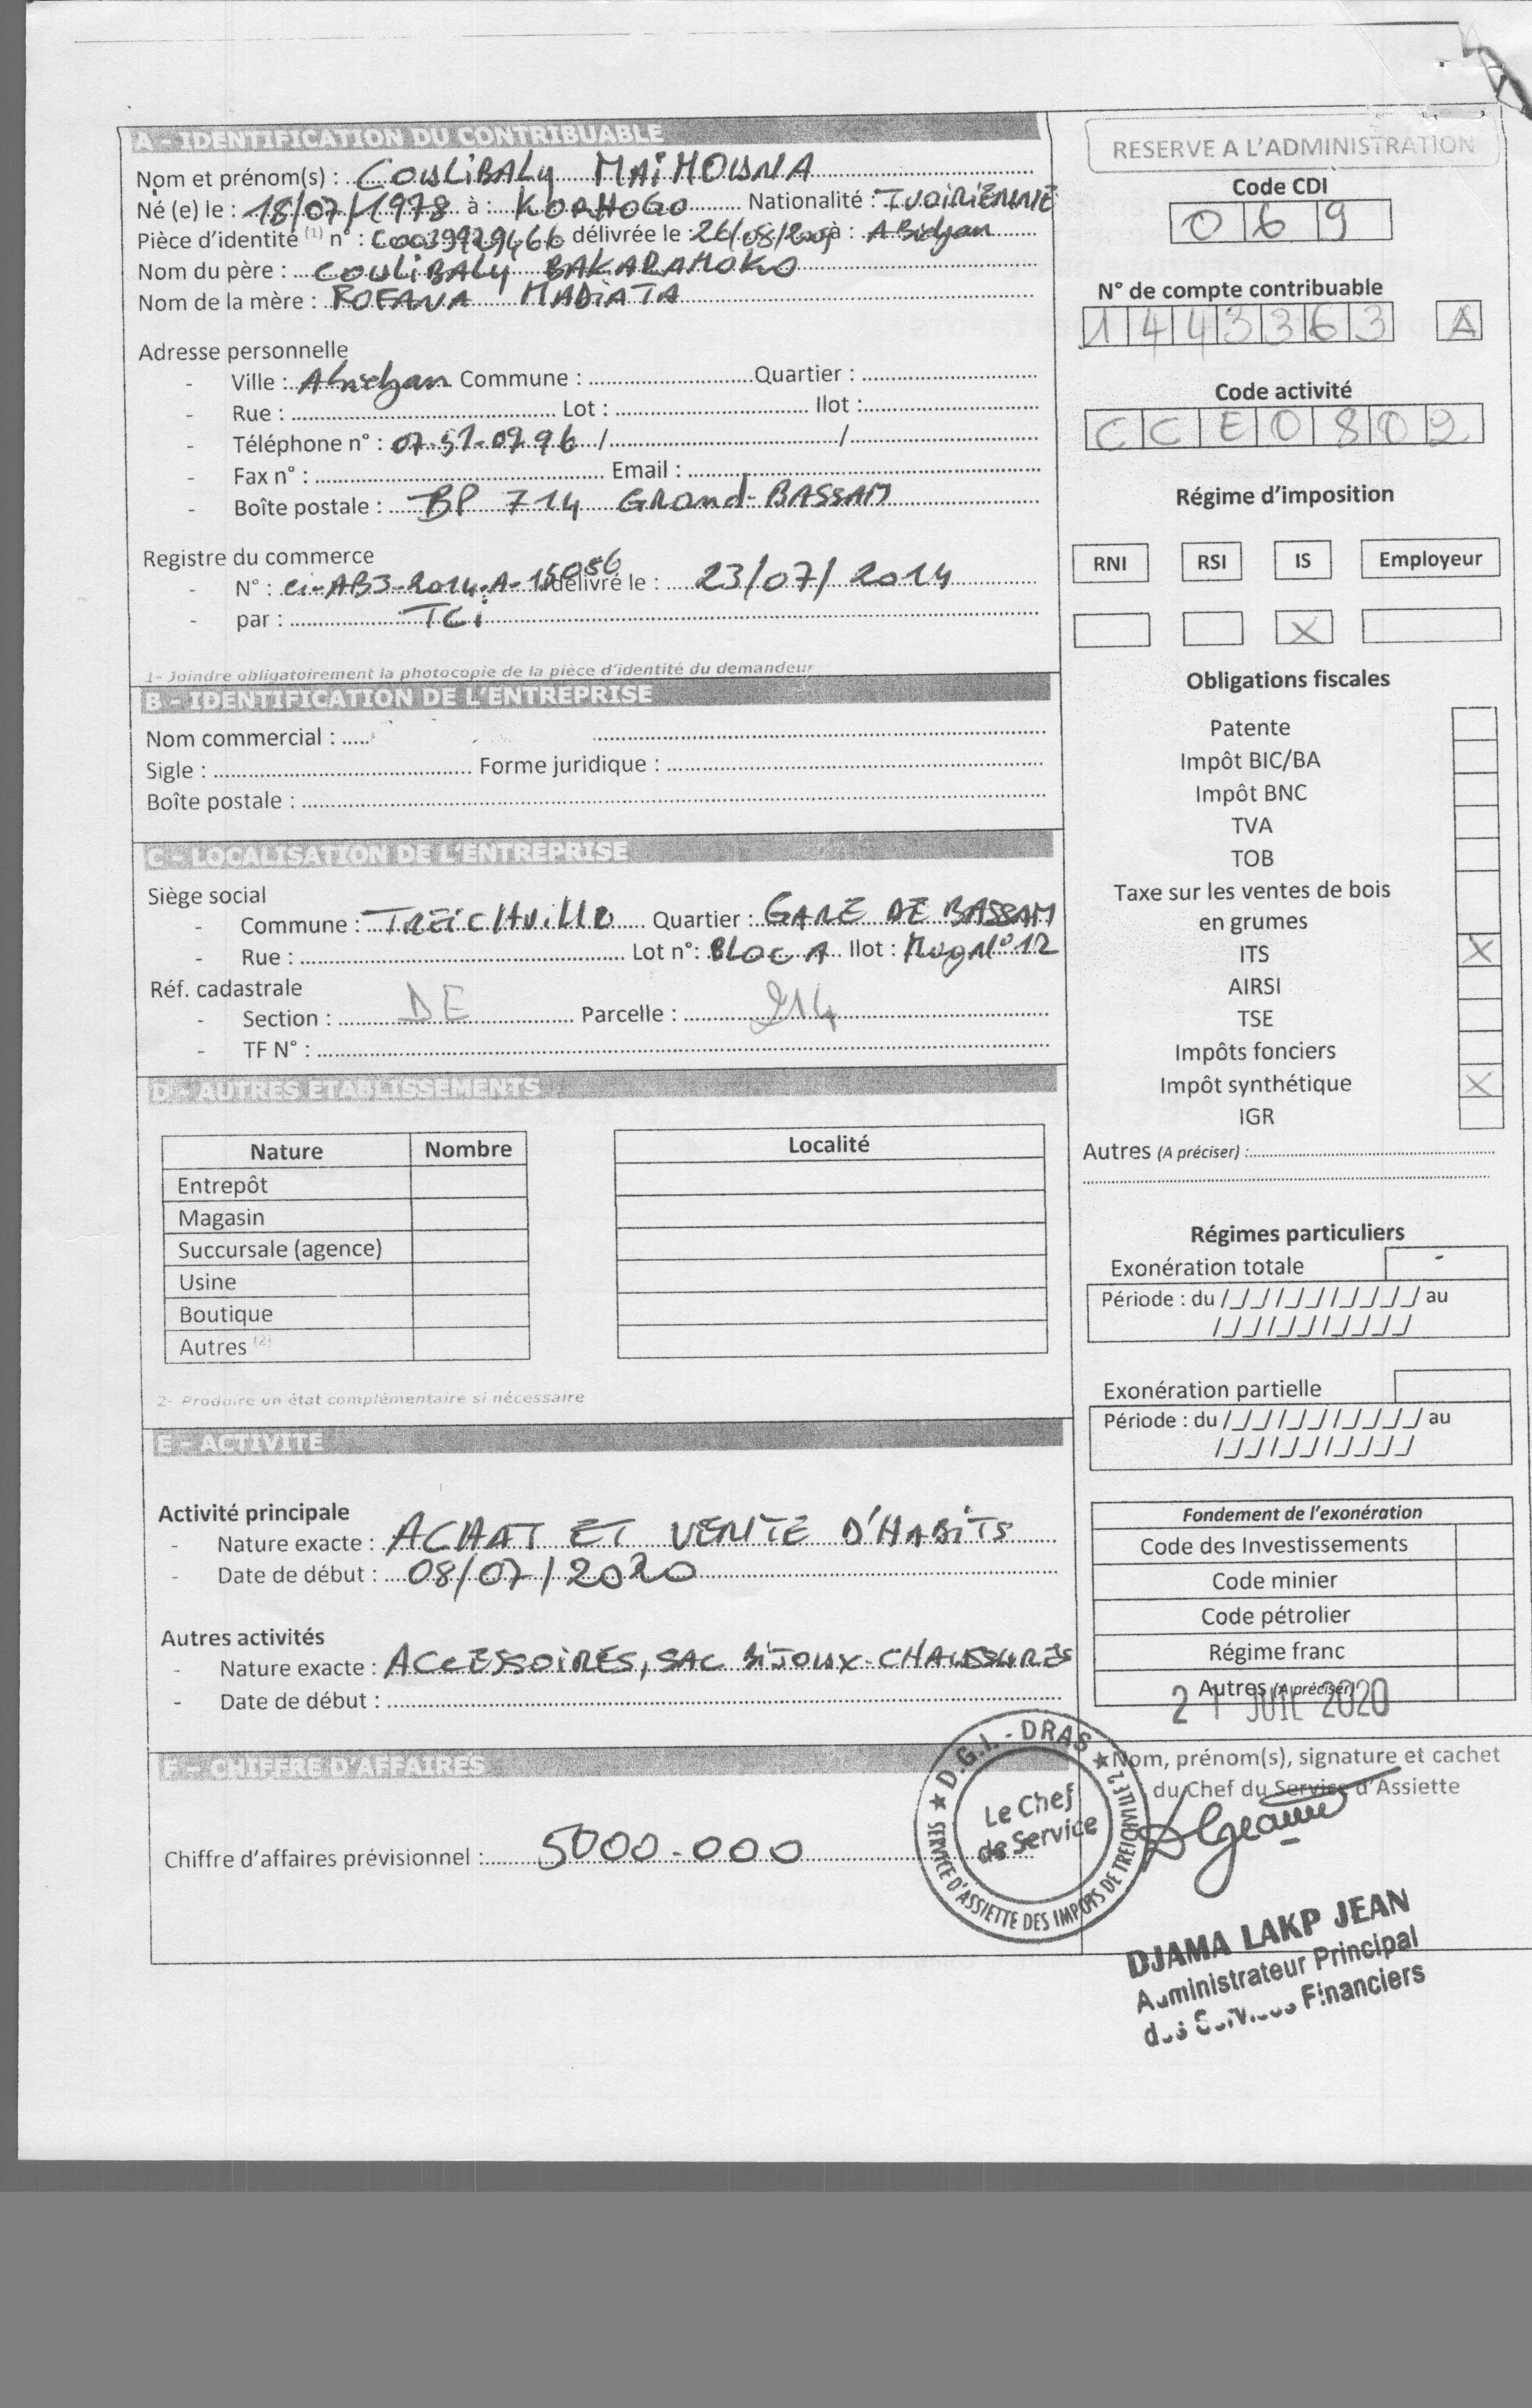 A - IDENTIFICATION DU CONTRIBUABLE
Nom et prénom(s) : COULIBALY MAIMOUNA
Né (e) le : 18/07/1978 à : KORHOGO Nationalité : IVOIRIENNE
Pièce d'identité (1) n° : C00399729466 délivrée le : 26/08/2009 à : ABidjan
Nom du père : COULIBALY BAKARAMOKO
Nom de la mère : FOFANA MADIATA
Adresse personnelle
- Ville : Abidjan Commune : Quartier :
- Rue : Lot : Ilot :
- Téléphone n° : 07-51-09 96 / /
- Fax n° : Email :
- Boîte postale : BP 714 GRand-BASSAM
Registre du commerce
- N° : Ci-ABJ-2014-A-15056 délivré le : 23/07/2014
- par : TCi
1- Joindre obligatoirement la photocopie de la pièce d'identité du demandeur
B - IDENTIFICATION DE L'ENTREPRISE
Nom commercial :
Sigle : Forme juridique :
Boîte postale :
C - LOCALISATION DE L'ENTREPRISE
Siège social
- Commune : TREICHVILLE Quartier : GARE DE BASSAM
- Rue : Lot n°: BLOC A Ilot : Mag N°12
Réf. cadastrale
- Section : DE Parcelle : 214
- TF N° :
D - AUTRES ETABLISSEMENTS
Nature Nombre Localité
Entrepôt
Magasin
Succursale (agence)
Usine
Boutique
Autres (2)
2- Produire un état complémentaire si nécessaire
E - ACTIVITE
Activité principale
- Nature exacte : ACHAT ET VENTE D'HABITS
- Date de début : 08/07/2020
Autres activités
- Nature exacte : ACCESSOIRES, SAC BIJOUX-CHAUSSURES
- Date de début :
F - CHIFFRE D'AFFAIRES
Chiffre d'affaires prévisionnel : 5000-000
RESERVE A L'ADMINISTRATION
Code CDI
0 6 9
N° de compte contribuable
1 4 4 3 3 6 3 A
Code activité
C C E 0 8 0 2
Régime d'imposition
RNI RSI IS Employeur
X
Obligations fiscales
Patente
Impôt BIC/BA
Impôt BNC
TVA
TOB
Taxe sur les ventes de bois
en grumes
ITS X
AIRSI
TSE
Impôts fonciers
Impôt synthétique X
IGR
Autres (A préciser) :
Régimes particuliers
Exonération totale -
Période : du /_/_/ /_/_/ /_/_/_/_/ au
/_/_/ /_/_/ /_/_/_/_/
Exonération partielle
Période : du /_/_/ /_/_/ /_/_/_/_/ au
/_/_/ /_/_/ /_/_/_/_/
Fondement de l'exonération
Code des Investissements
Code minier
Code pétrolier
Régime franc
Autres (A préciser)
21 JUIL 2020
Nom, prénom(s), signature et cachet
du Chef du Service d'Assiette
★ D.G.I. - DRAS ★
SERVICE D'ASSIETTE DES IMPOTS DE TREICHVILLE 1
Le Chef
de Service
DJAMA LAKP JEAN
Administrateur Principal
des Services Financiers